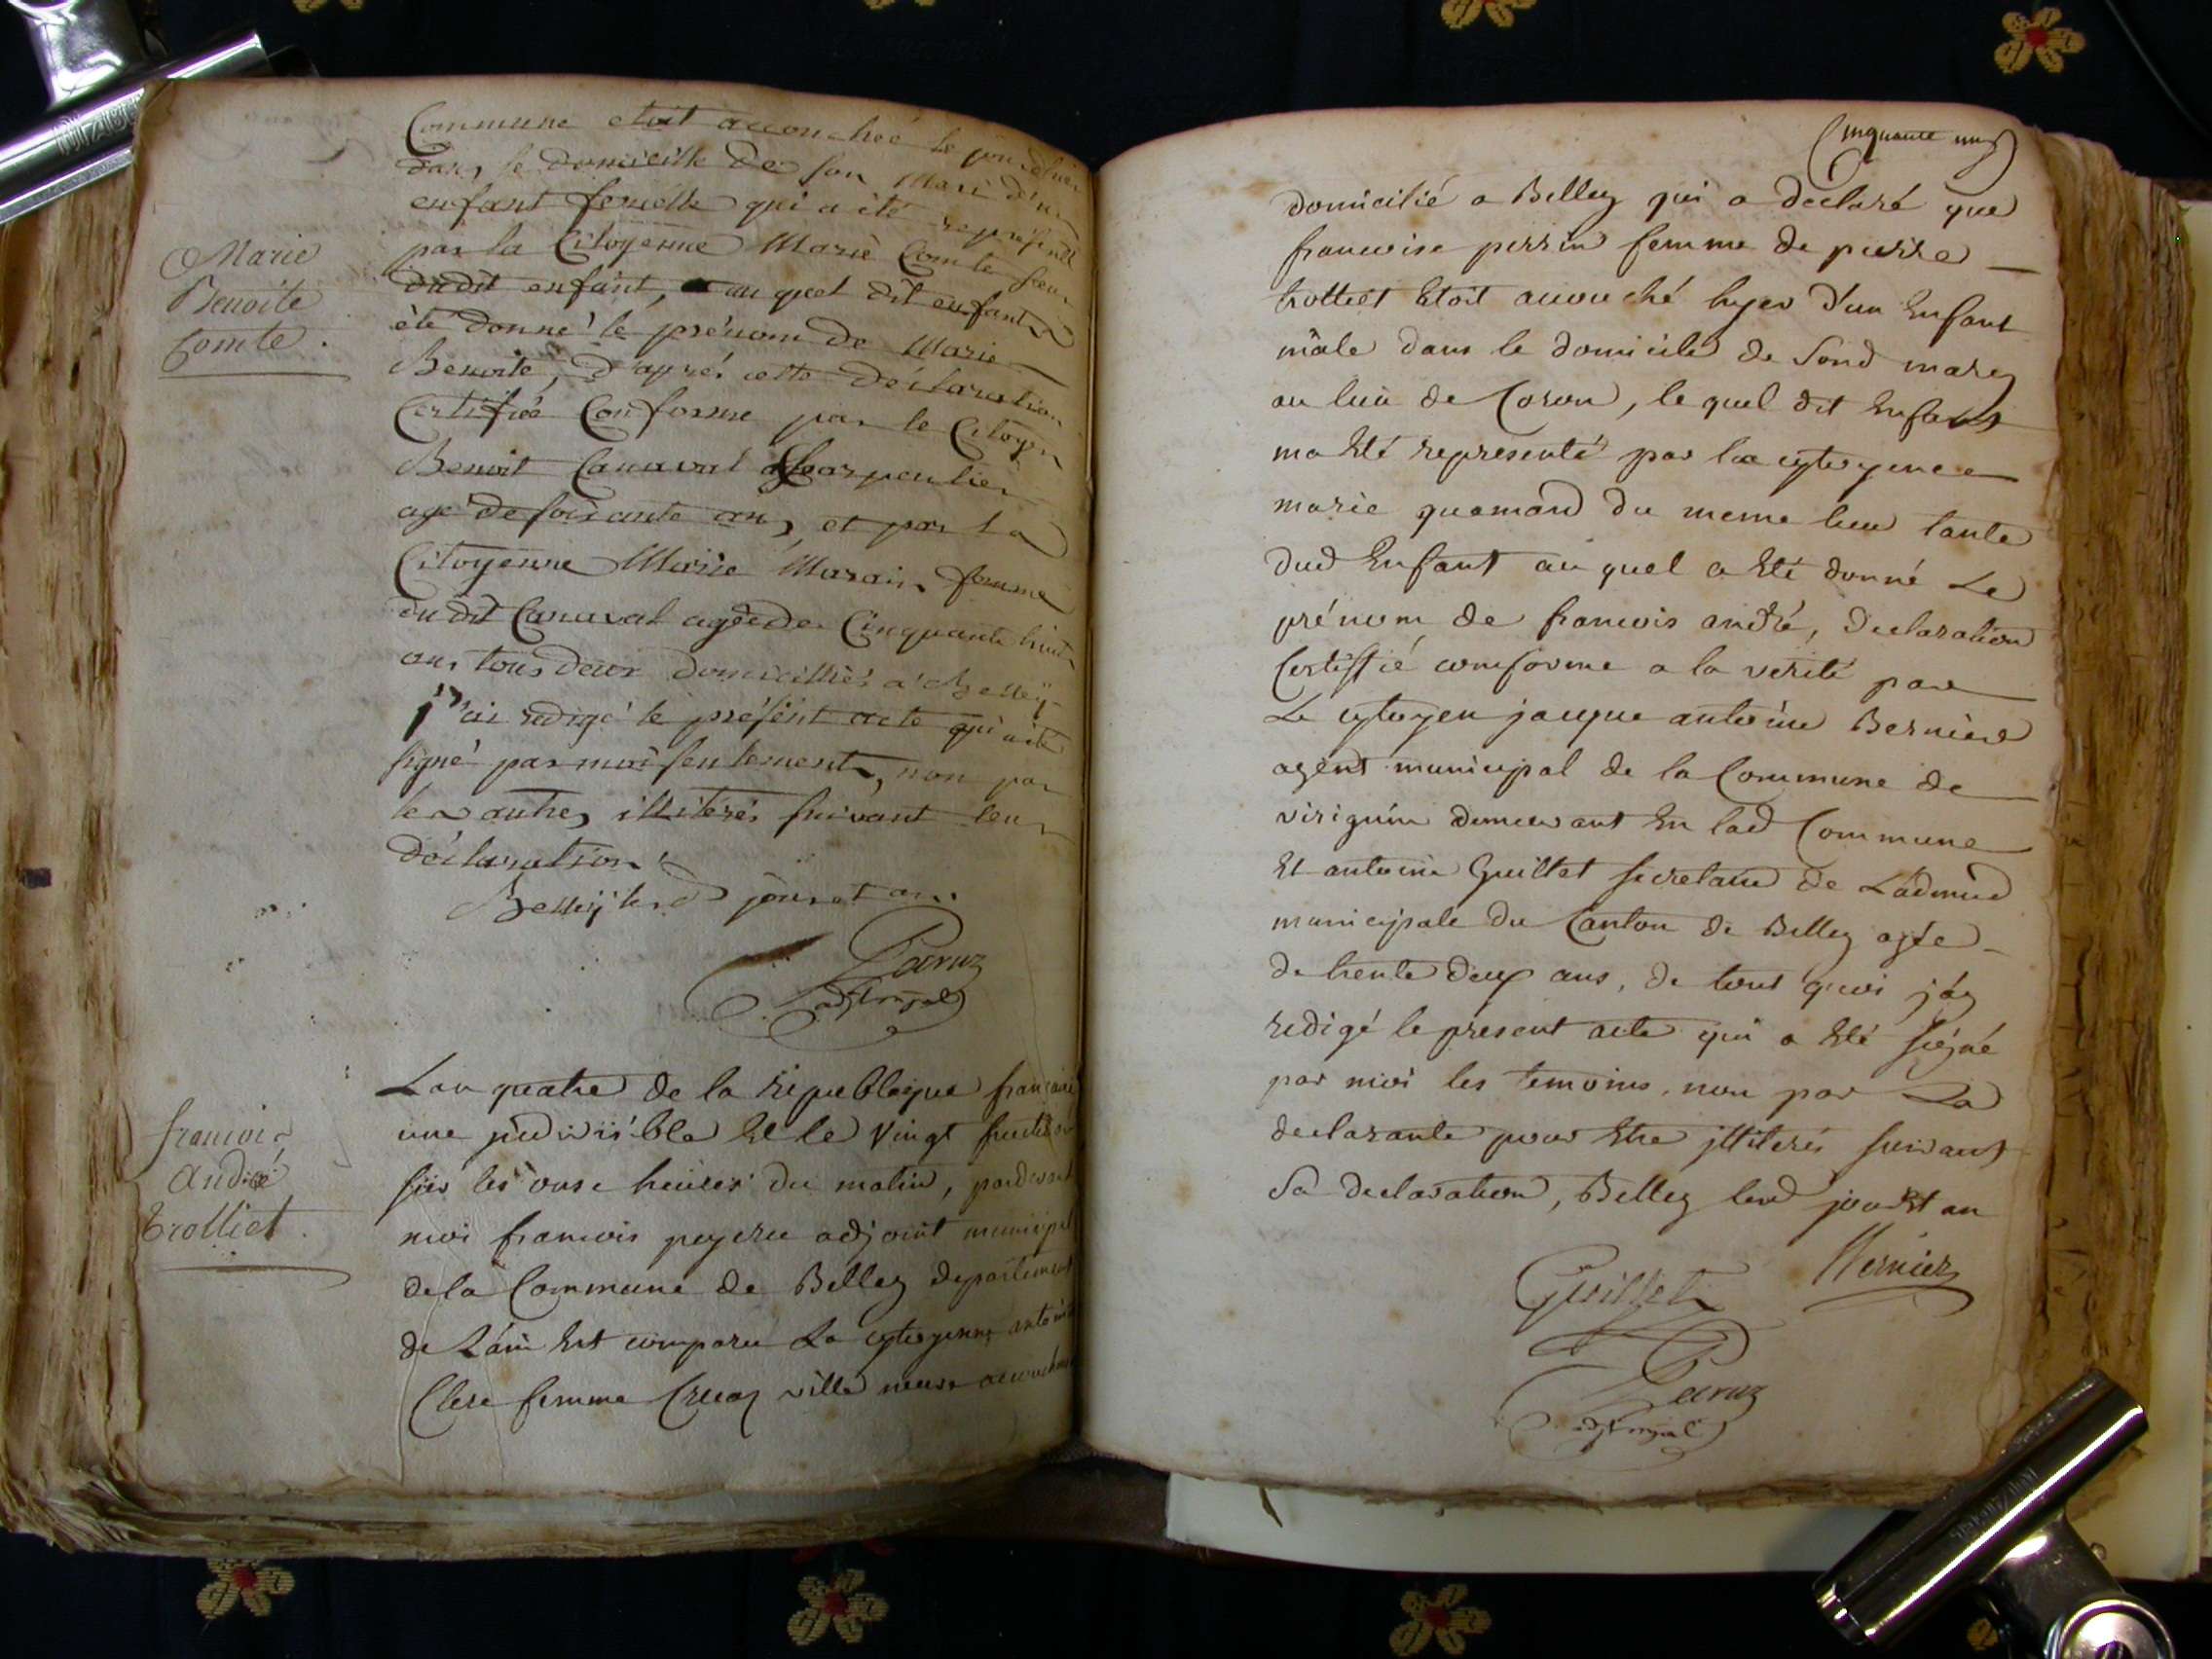 Commune etoit accouchée le jour d'hier
dans le domicille de son Mari d'un
enfant femelle qui a été représenté
par la Citoyenne Marie Comte soeur
dudit enfant, auquel dit enfant a
été donné le prénom de Marie
Benoite, d'après cette déclaration
Certifiée Conforme par le Citoyen
Benoit Canaval Charpentier
agé de soixante ans, et par la
Citoyenne Marie Marain femme
du dit Canaval agée de Cinquante huit
ans tous deux domicilliés a Belleÿ
j'ai redigé le présent acte qui a été
signé par moi seulement, non par
les autres illiterés suivant leur
déclaration
Belleÿ lesd jour et an.
Marie
Benoite
Comte.
Lan quatre de la republique francaise
une jndivisible Et le Vingt fructidor
sur les onse heures du matin, pardevant
moi francois peyeru adjoint municipal
de la Commune de Belley departement
de Lain Est comparu La cytoyenne antoinete
Clere femme Cruaz ville neuse accoucheuse
francois
André
trolliet.
Cinquante un
domicilié a Belley qui a declaré que
francoise perrin femme de pierre
trolliet Etoit acouché hyer d'un Enfant
mâle dans le domicile de Sond marey
au lieu de Coron, le quel dit Enfant
ma Eté representé par la cytoyenne
marie quamand du meme lieu tante
dud Enfant au quel a Eté donné Le
prénom de francois andré, declaration
Certiffié comforme a la verité par
Le cytoyen jacque antoine Bernier
agent municipal de la Commune de
virignin demeurant En lad Commune
Et antoine Guillet secretaire de Ladmind
municipale du Canton de Belley agée
de trente deux ans, de tout quoi jáy
redigé le present acte qui a Eté signé
par moi les temoins, non par La
declarante pour Etre jlliterés suivant
Sa declaration, Belley lesd jour Et an
Guillet Bernier